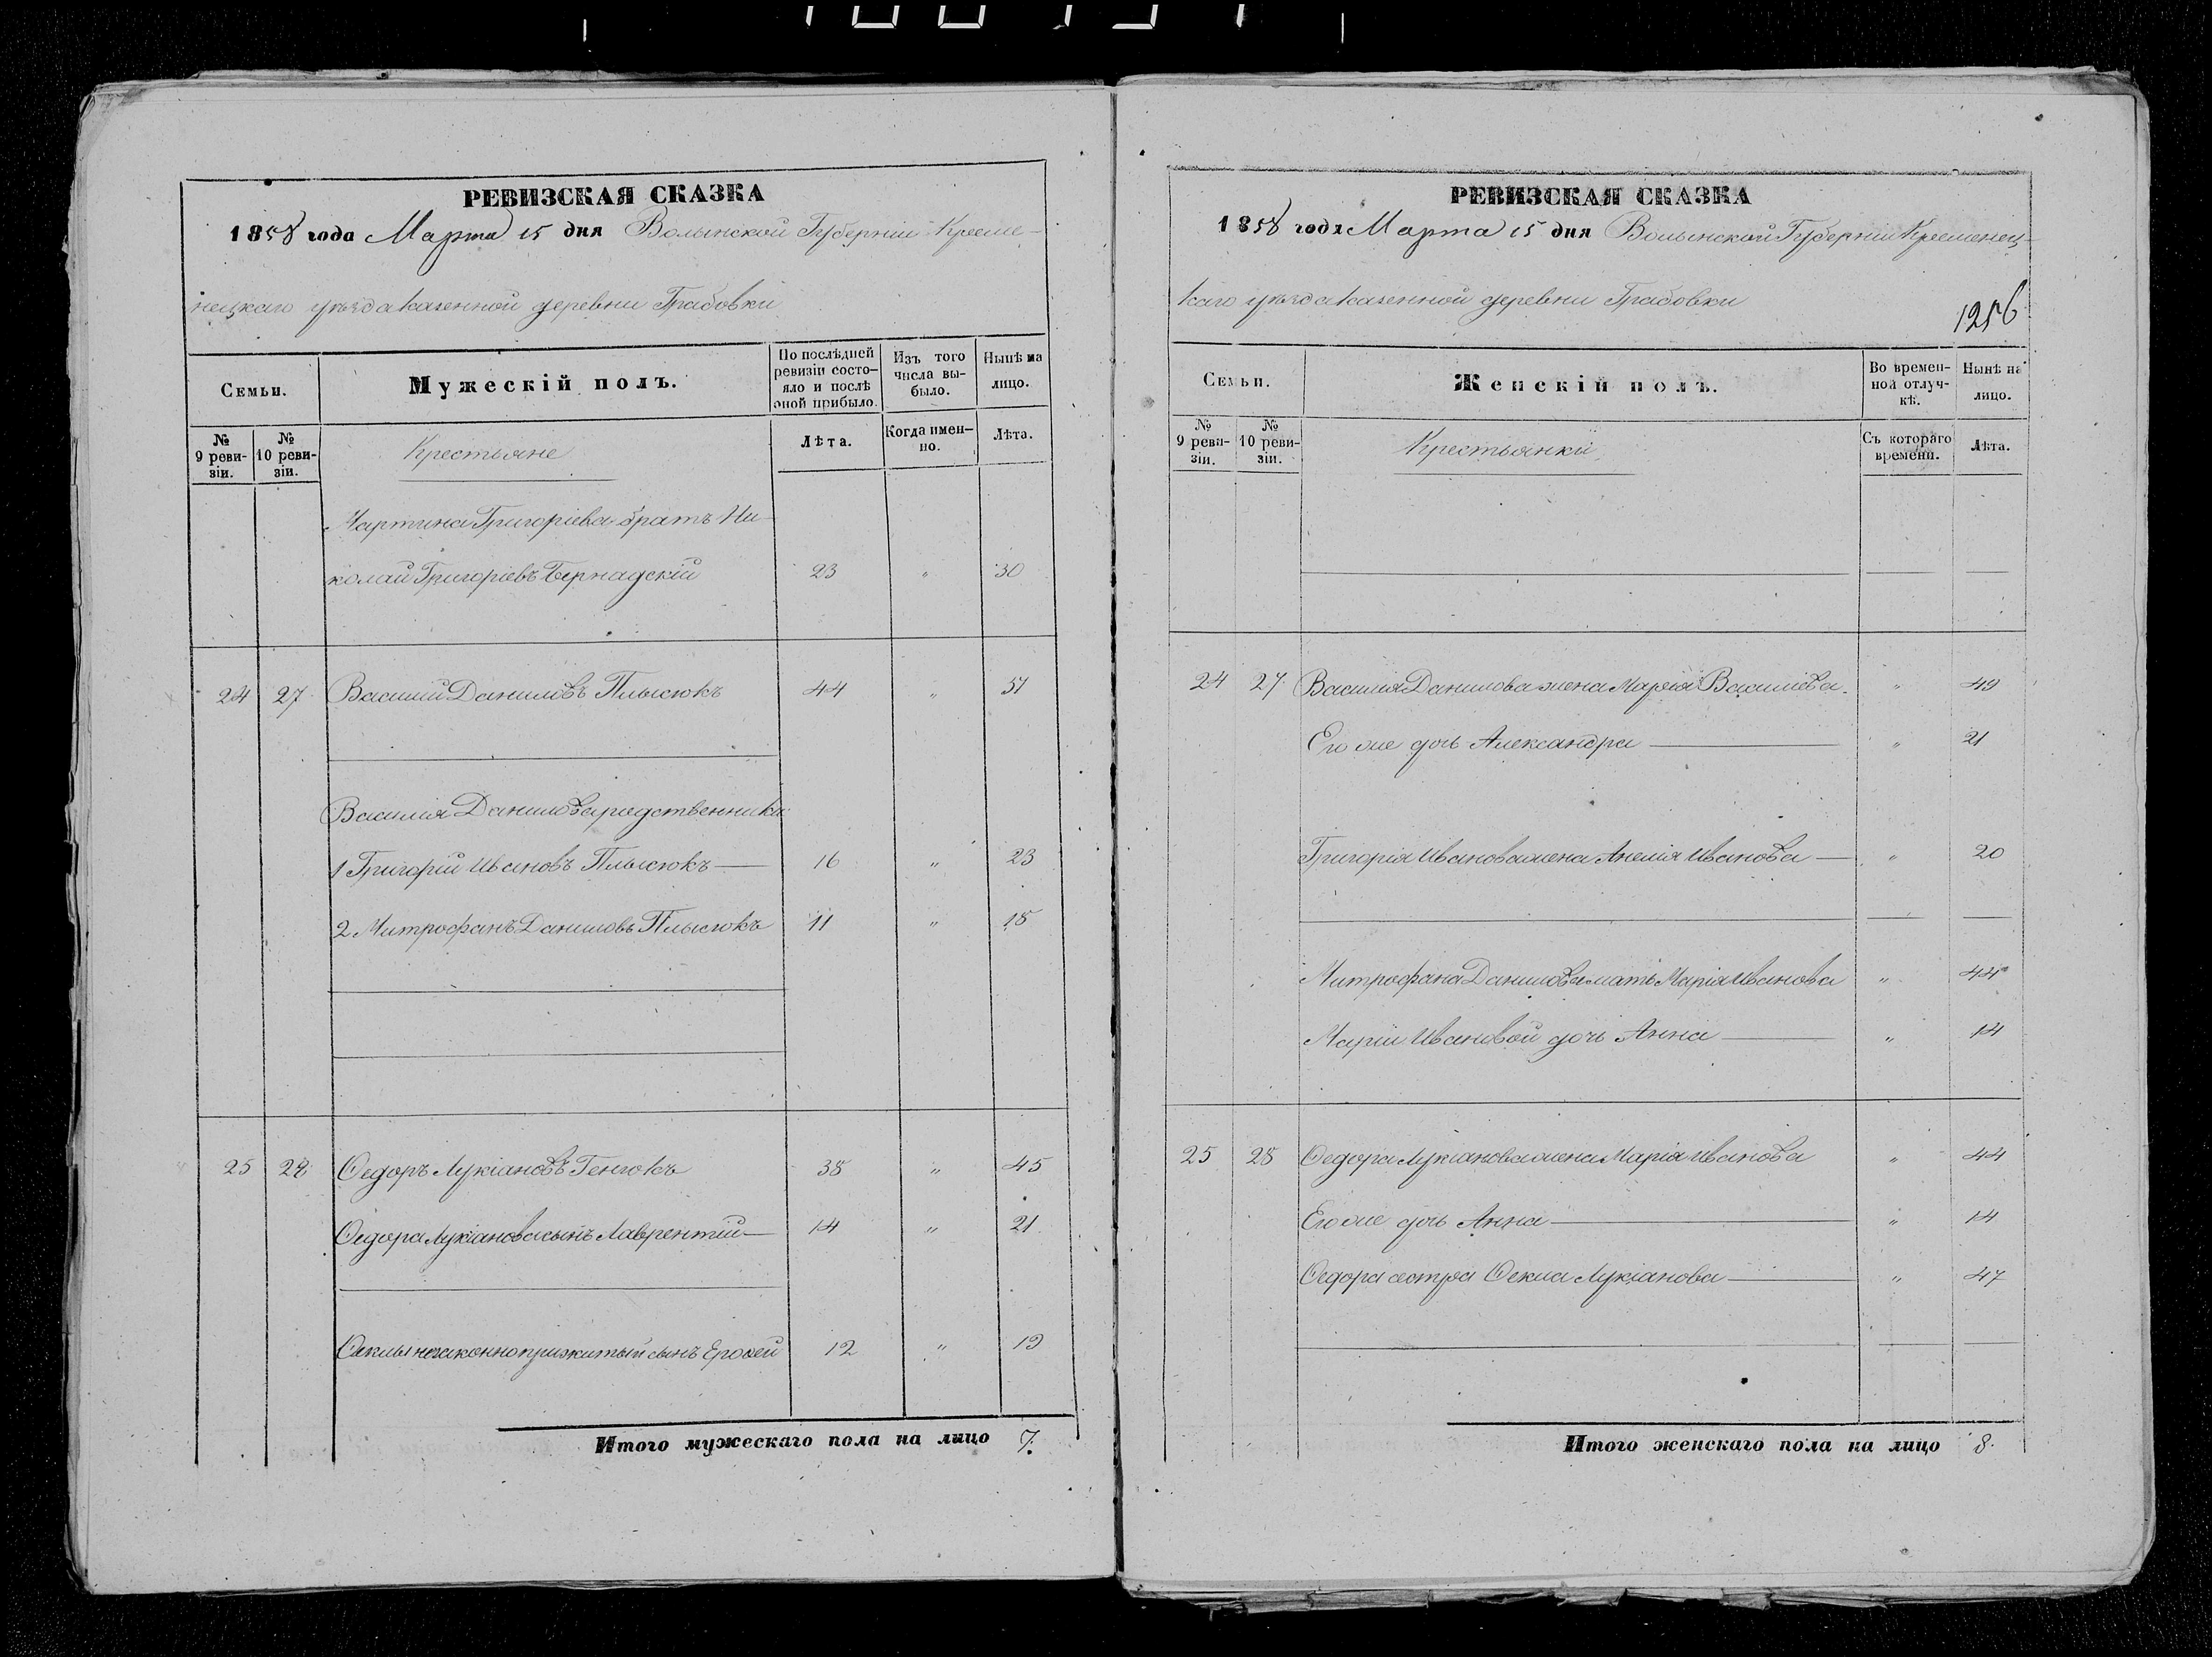 РЕВИЗСКАЯ СКАЗКА
1858 года Марта 15 дня Волынской Губерніи Креме-
нецкаго уѣзда казенной деревни Грабовки
Семьи.
Мужескій полъ.
По послѣдней ревизіи состо-яло и послѣ оной прибыло.
Изъ того числа вы-было.
Нынѣ на лицо.
№ 9 реви-зіи.
№ 10 реви-зіи.
Крестьяне
Лѣта.
Когда имен-но.
Лѣта.
Мартина Григоріева братъ Ни-
колай Григоріевъ Бернадскій 23 " 30
24 27 Василій Даниловъ Плысюкъ 44 " 51
Василія Данилова родственники
1 Григорій Ивановъ Плысюкъ 16 " 23
2 Митрофанъ Даниловъ Плысюкъ 11 " 18
25 28 Ѳедоръ Лукіановъ Генюкъ 38 " 45
Ѳедора Лукіанова сынъ Лаврентій 14 " 21
Ѳеклы незаконноприжитый сынъ Ероѳей 12 " 19
Итого мужескаго пола на лицо 7.
РЕВИЗСКАЯ СКАЗКА
1858 года Марта 15 дня Волынской Губерніи Кременец-
каго уѣзда казенной деревни Грабовки
1256
Семьи.
Женскій полъ.
Во времен-ной отлуч-кѣ.
Нынѣ на лицо.
№ 9 реви-зіи.
№ 10 реви-зіи.
Крестьянки
Съ котораго времени.
Лѣта.
24 27 Василія Данилова жена Марія Василіева " 49
Его же дочь Александра " 21
Григорія Иванова жена Анелія Иванова " 20
Митрофана Данилова мать Марія Иванова " 44
Маріи Ивановой дочь Анна " 14
25 28 Ѳедора Лукіанова жена Марія Иванова " 44
Его же дочь Анна " 14
Ѳедора сестра Ѳекла Лукіанова " 47
Итого женскаго пола на лицо 8.